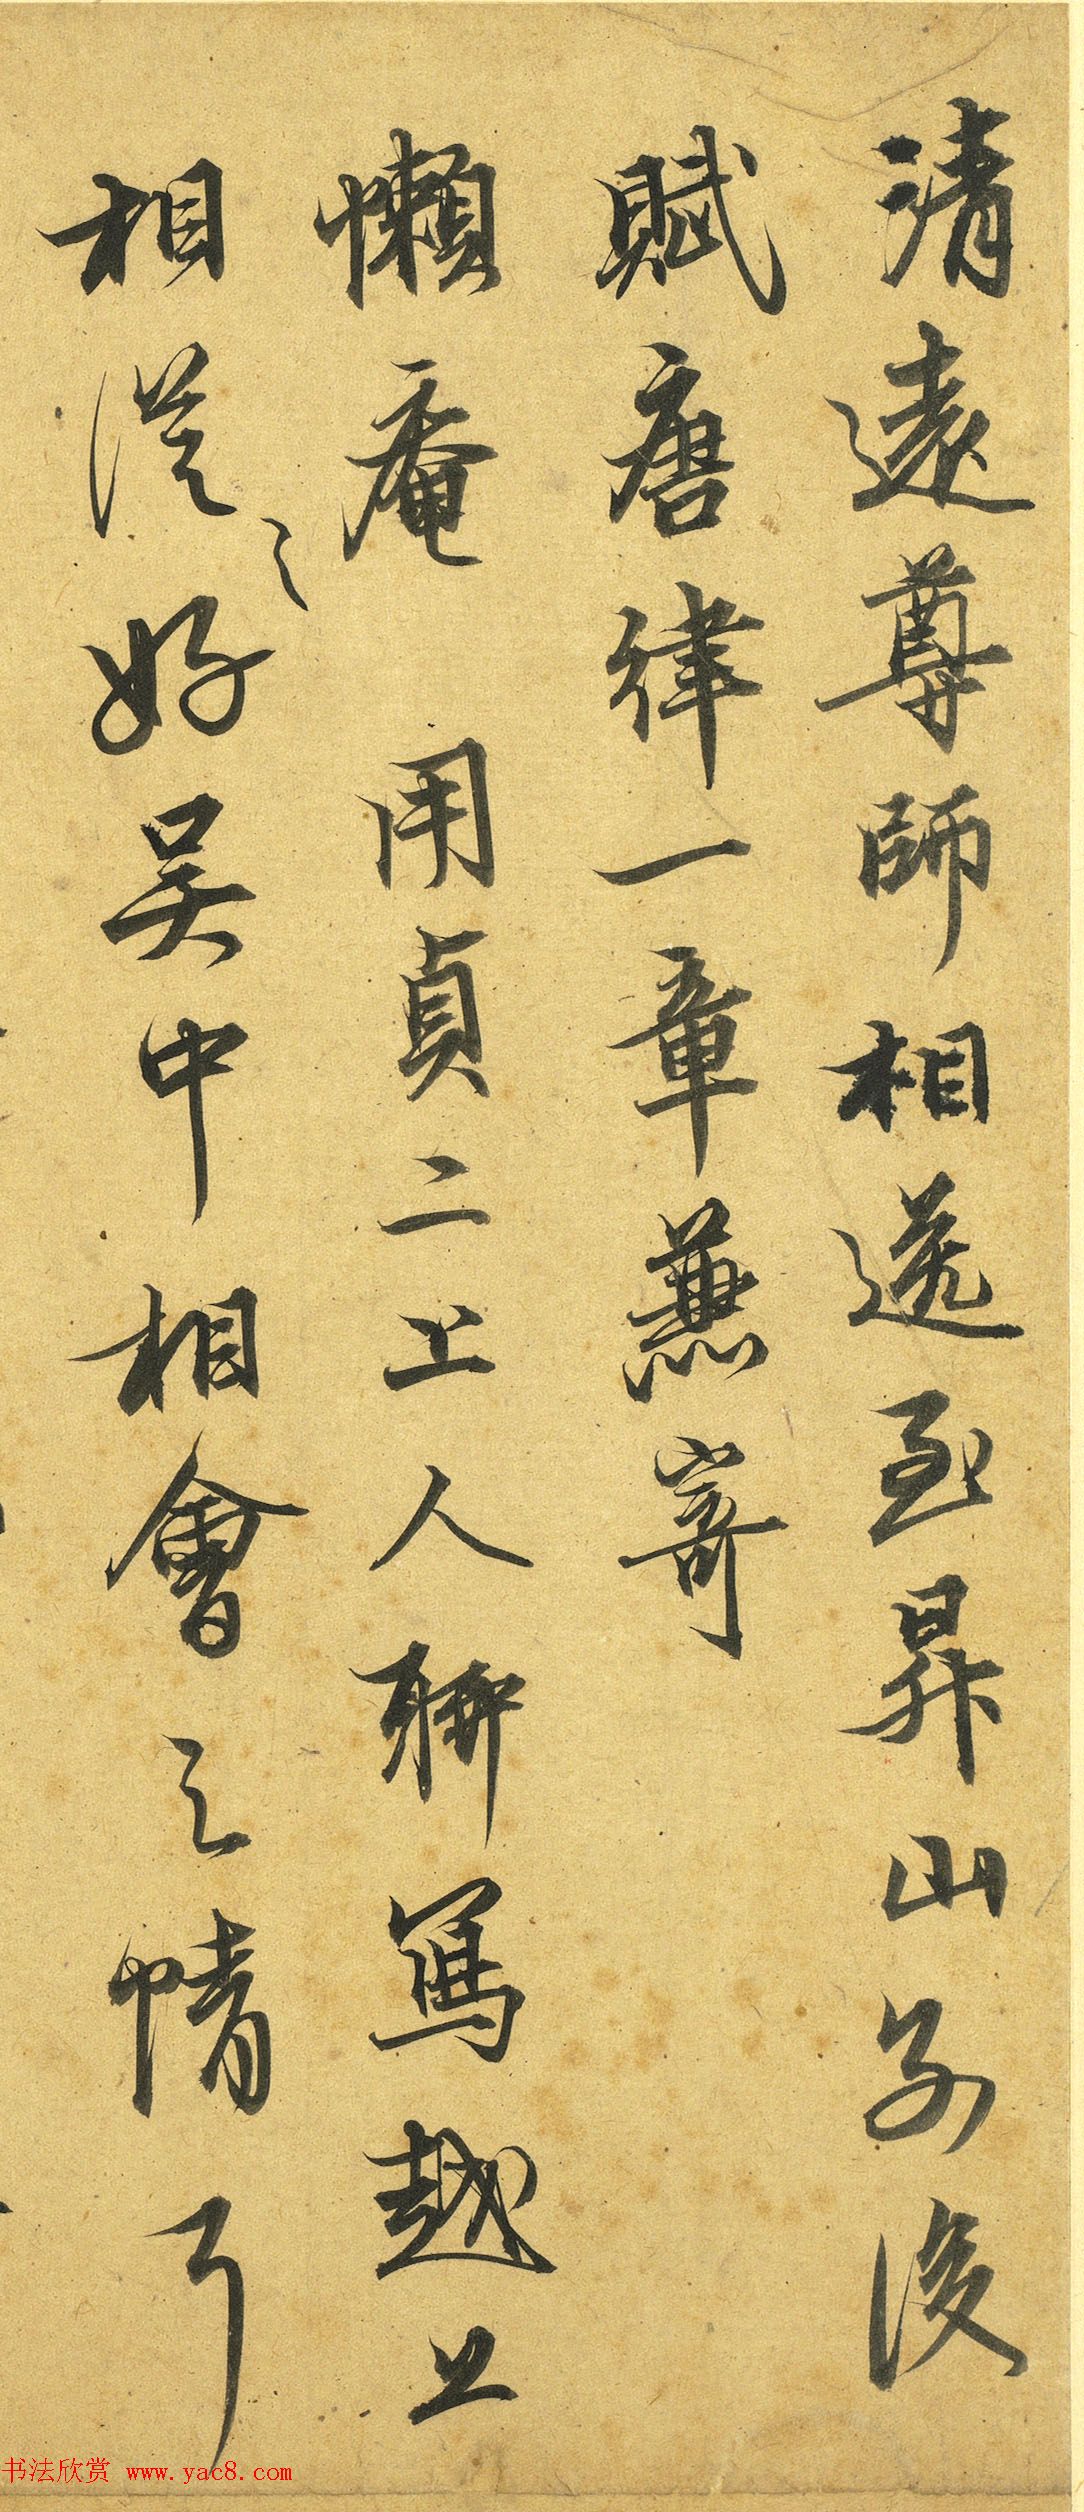 清遠尊師相送至昇山別後
賦唐律一章蕭寄
懶菴 用貞二上人聊寫越上
相從之好吳中相會之情了
书法欣赏 www.yac8.com